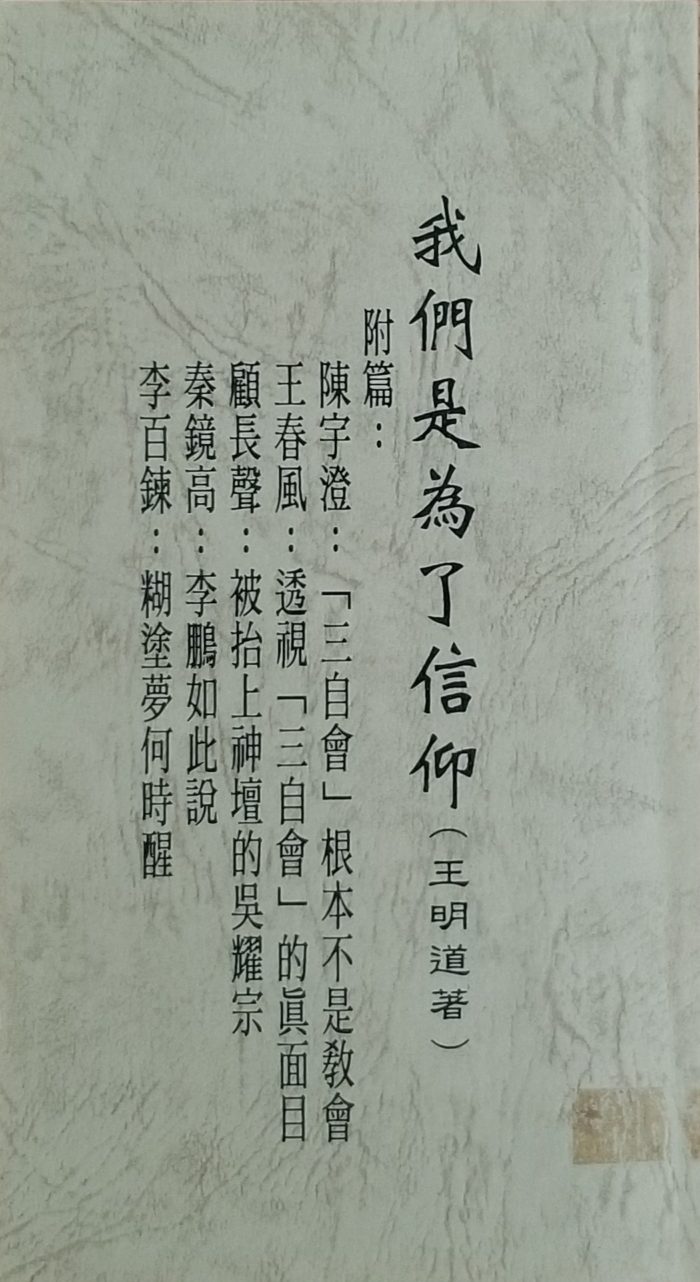 我們是為了信仰（王明道著）
附篇：
陳宇澄：「三自會」根本不是敎會
王春風：透視「三自會」的眞面目
顧長聲：被抬上神壇的吳耀宗
秦鏡高：李鵬如此說
李百鍊：糊塗夢何時醒